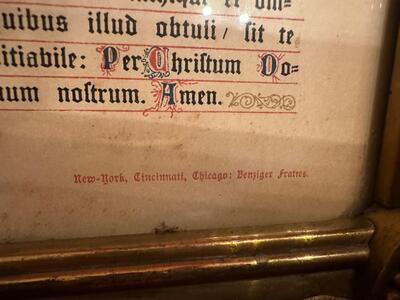 uibus illud obtuli, sit te
itiabile: Per Christum Do=
num nostrum. Amen.
New-York, Cincinnati, Chicago: Benziger Fratres.